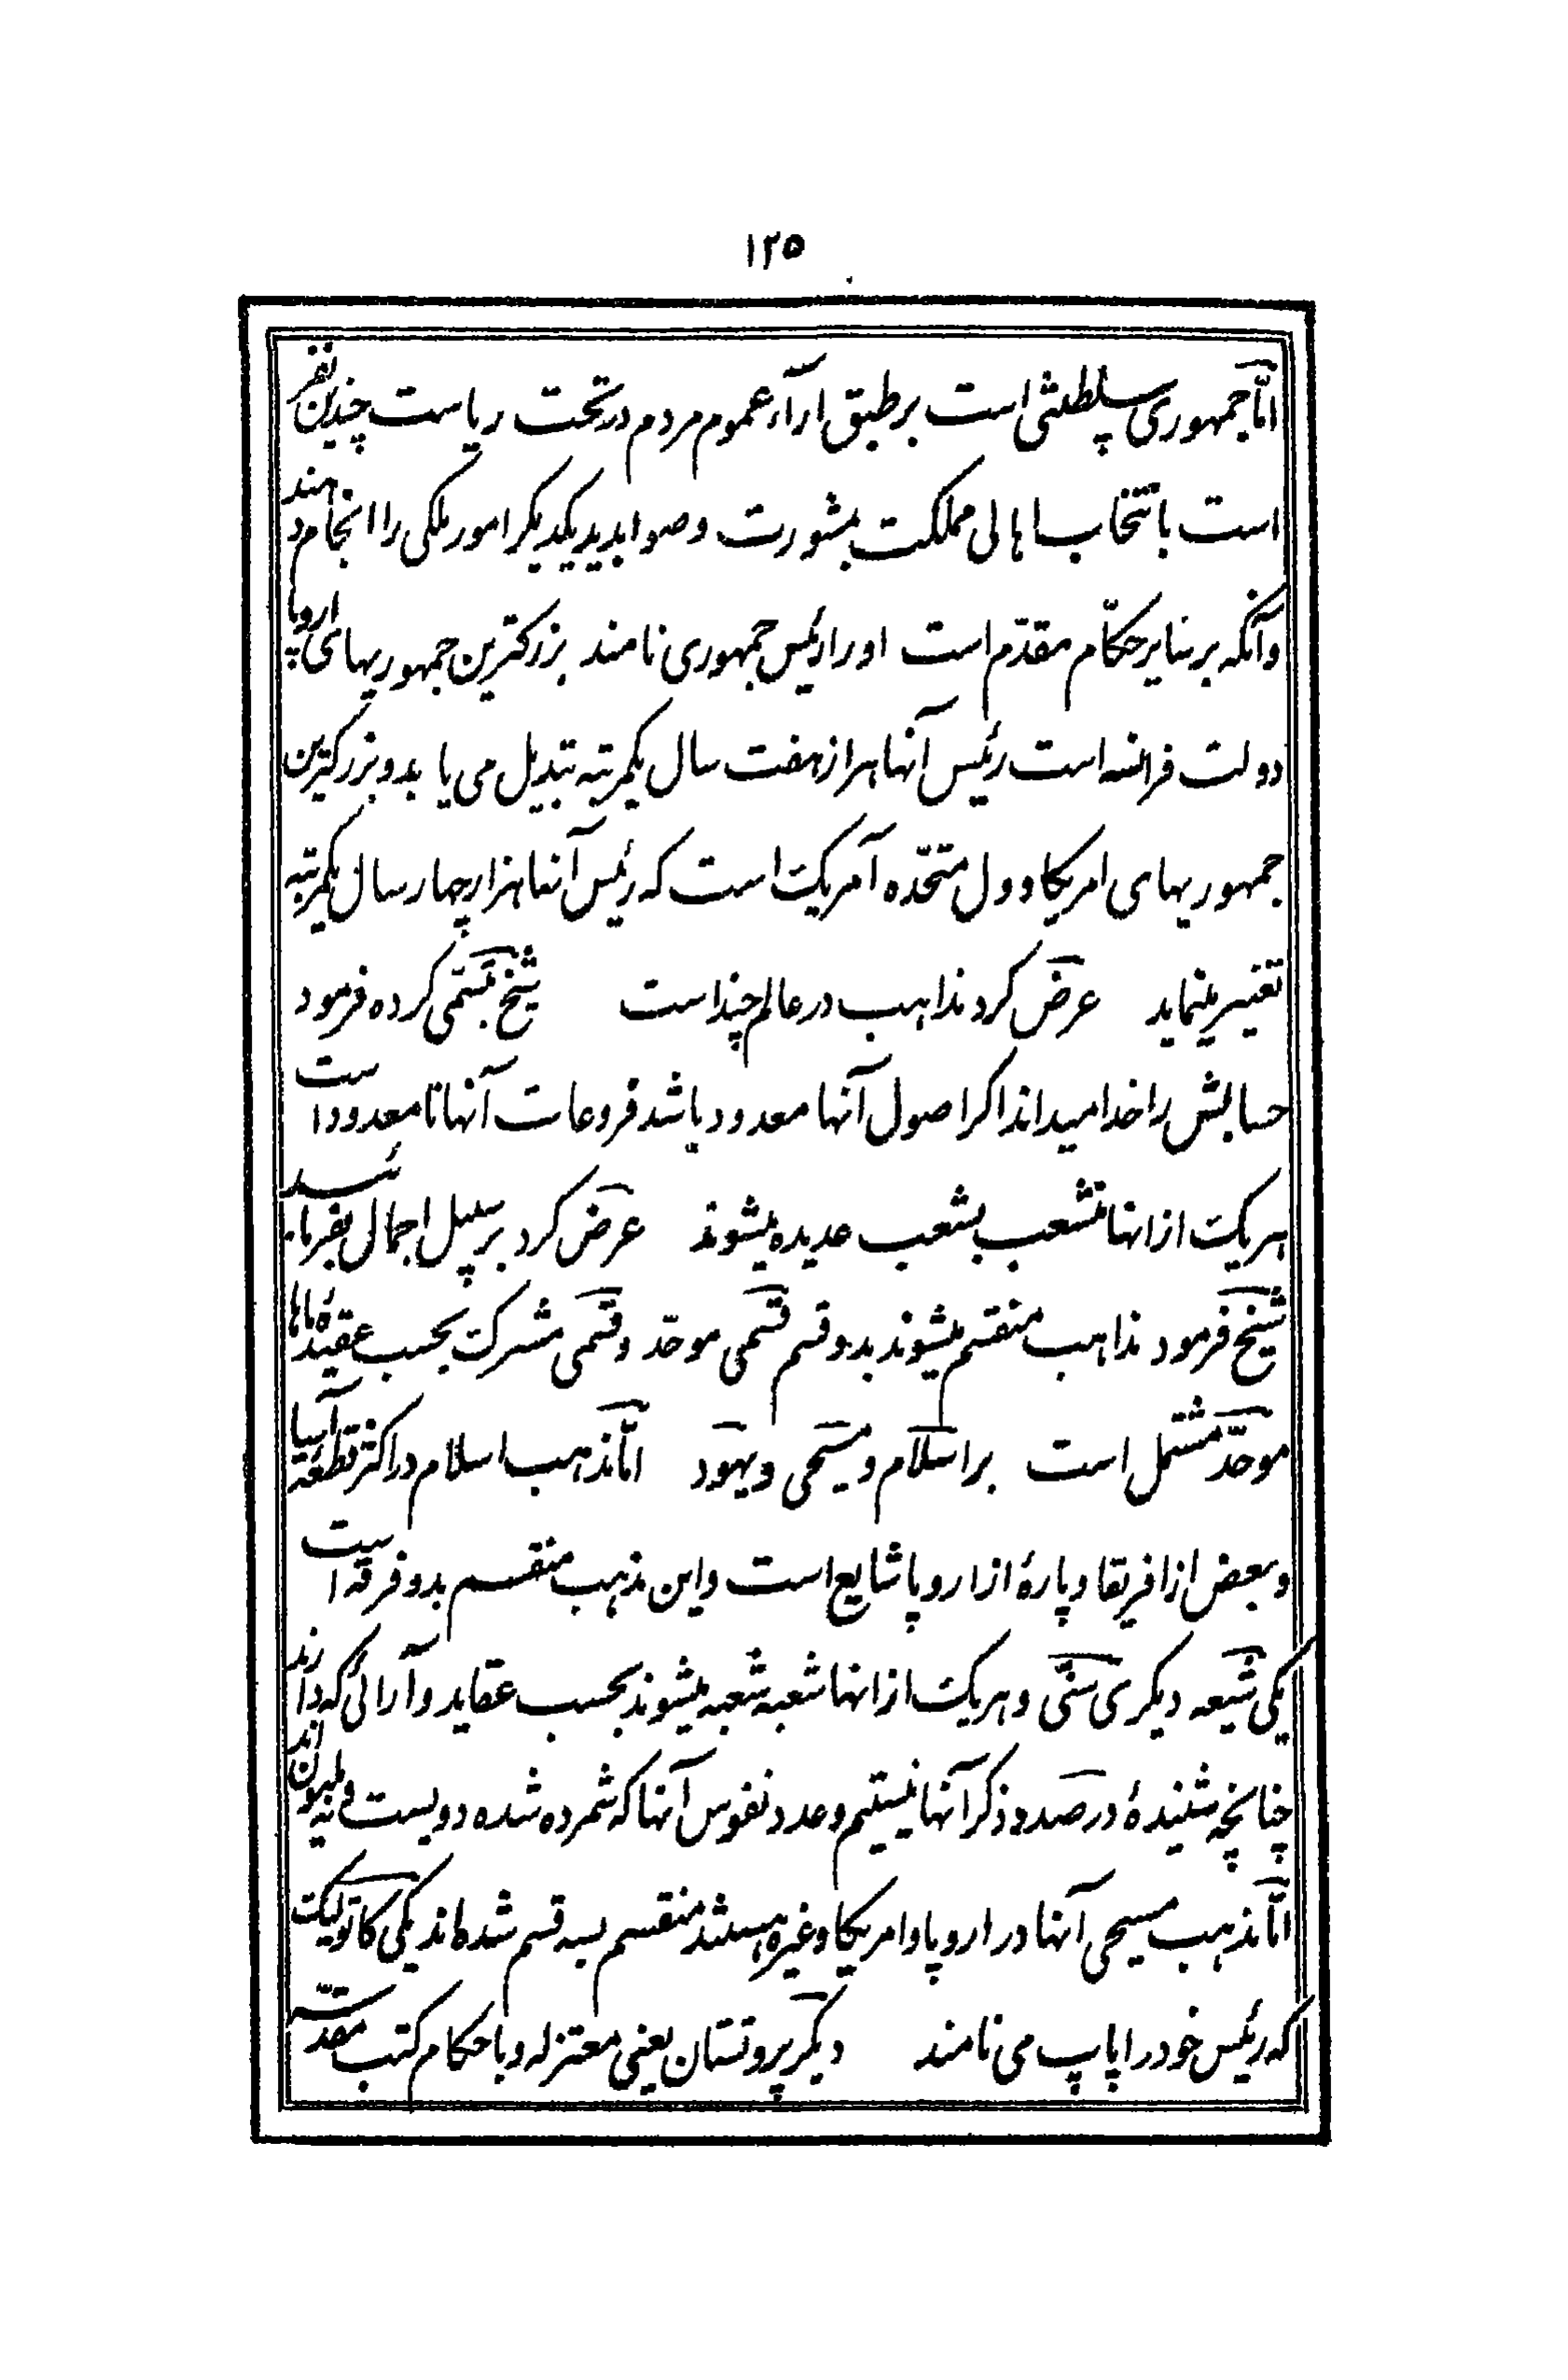 ۱۲۵
امّا جمهوری سلطنتی است بر طبق ارآء عموم مردم در تحت ریاست چندین نفر
است با نتخاب اهالی مملکت بمشورت و صوابدید یکدیگر امور ملکی را انجام دهند
و آنکه بر سایر حکّام مقدّم است او را رئیس جمهوری نامند بزرکترین جمهوریهای اروپا
دولت فرانسه است رئیس آنها هر از هفت سال یکمرتبه تبدیل می یابد و بزرکترین
جمهوریهای امریکا دول متحّده آمریک است که رئیس آنها هر از چهار سال یکمرتبه
تغییر مینماید عرض کرد مذاهب در عالم چند است شیخ تبسّمی کرده فرمود
حسابش را خدا میداند اکر اصول آنها معدود باشد فروعات آنها نا معدود است
هر یک از انها منشعب بشعب عدیده میشوند عرض کرد بر سبیل اجمال بفرمائید
شیخ فرمود مذاهب منقسم میشوند بدو قسم قسمی موحّد و قسمی مشرک بحسب عقیدهٔ ماها
موحّد مشتمل است بر اسلام و مسیحی و یهود امّا مذهب اسلام در اکثر قطعهٔ آسیا
و بعض از افریقا و پارهٔ از اروپا شایع است و این مذهب منقسم بدو فرقه است
یکی شیعه دیکری سنّی و هر یک از انها شعبه شعبه میشوند بحسب عقاید و آرائی که دارند
چنانچه شنیدهٔ در صدد ذکر آنها نیستیم و عدد نفوس آنها که شمرده شده دویست و نه ملیون اند
امّا مذهب مسیحی آنها در اروپا و امریکا و غیره هستند منقسم بسه قسم شده‌اند یکی کاتولیک
که رئیس خود را پاپ می نامند دیکر پروتستان یعنی معتزله و با حکام کتب مقدّسه